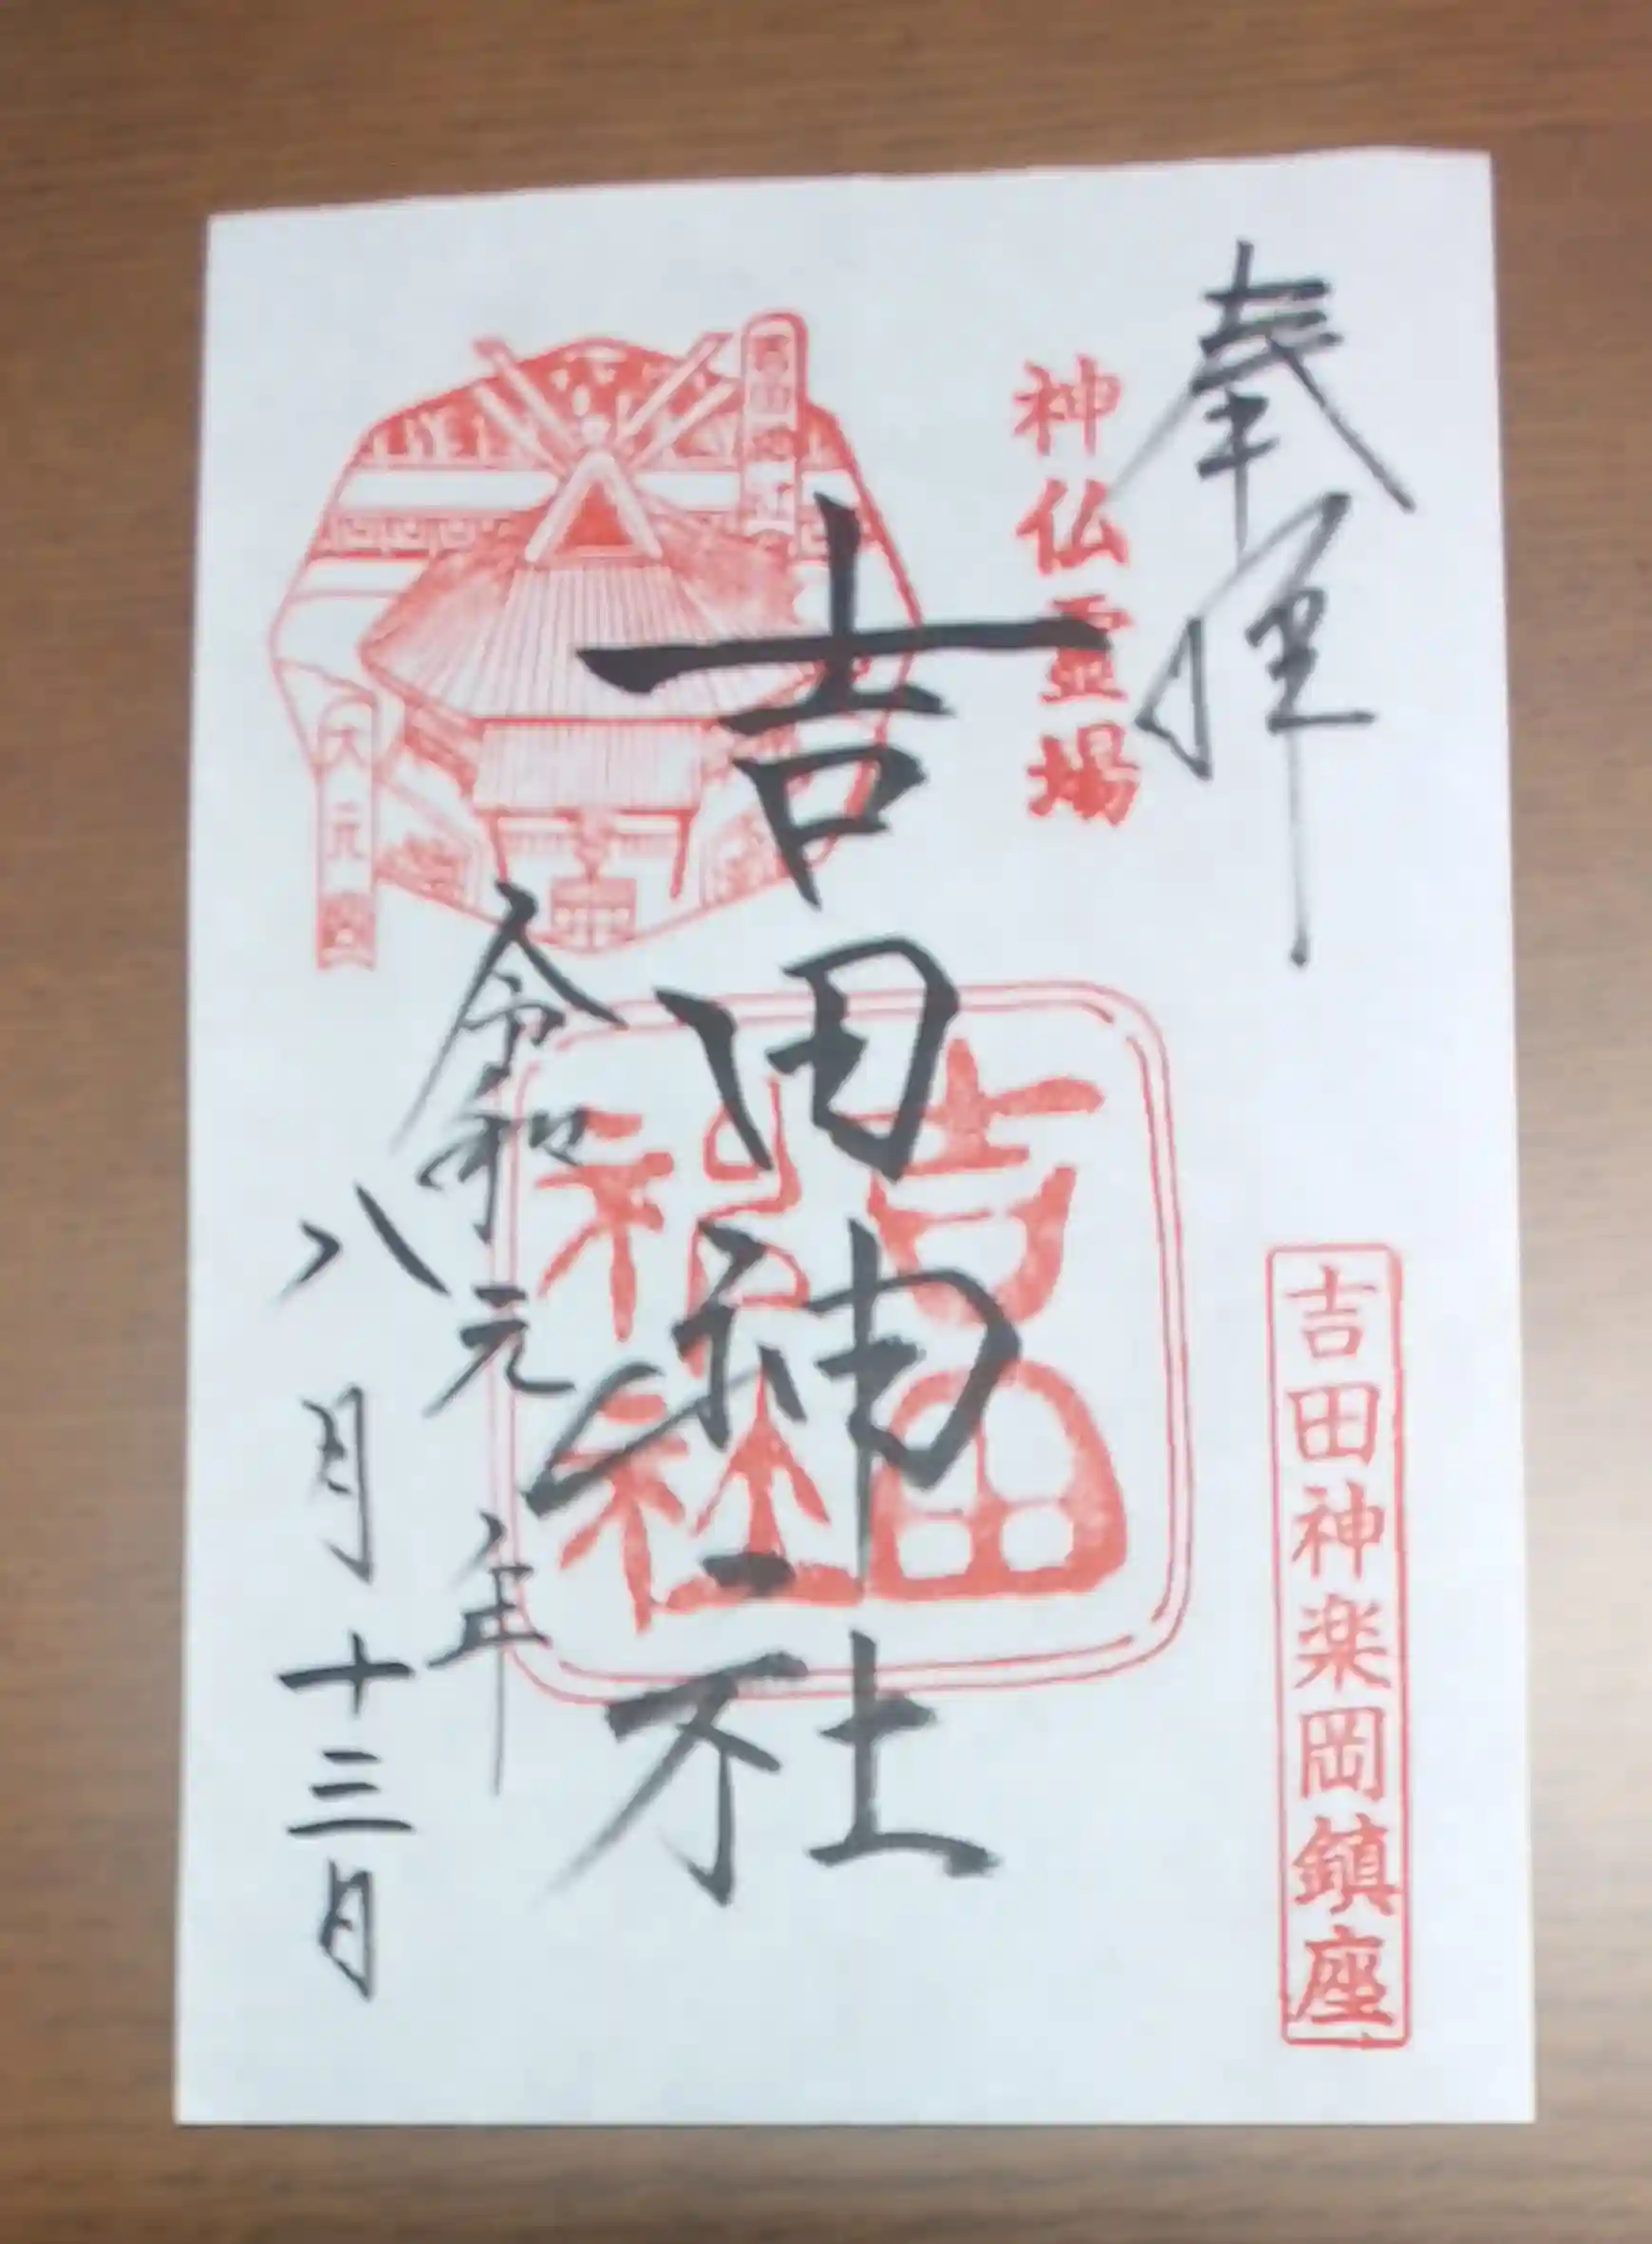 奉拝
神仏霊場
吉田神楽岡鎮座
吉田神社
吉田神社
吉田神社
大元宮
令和元年
八月十三日